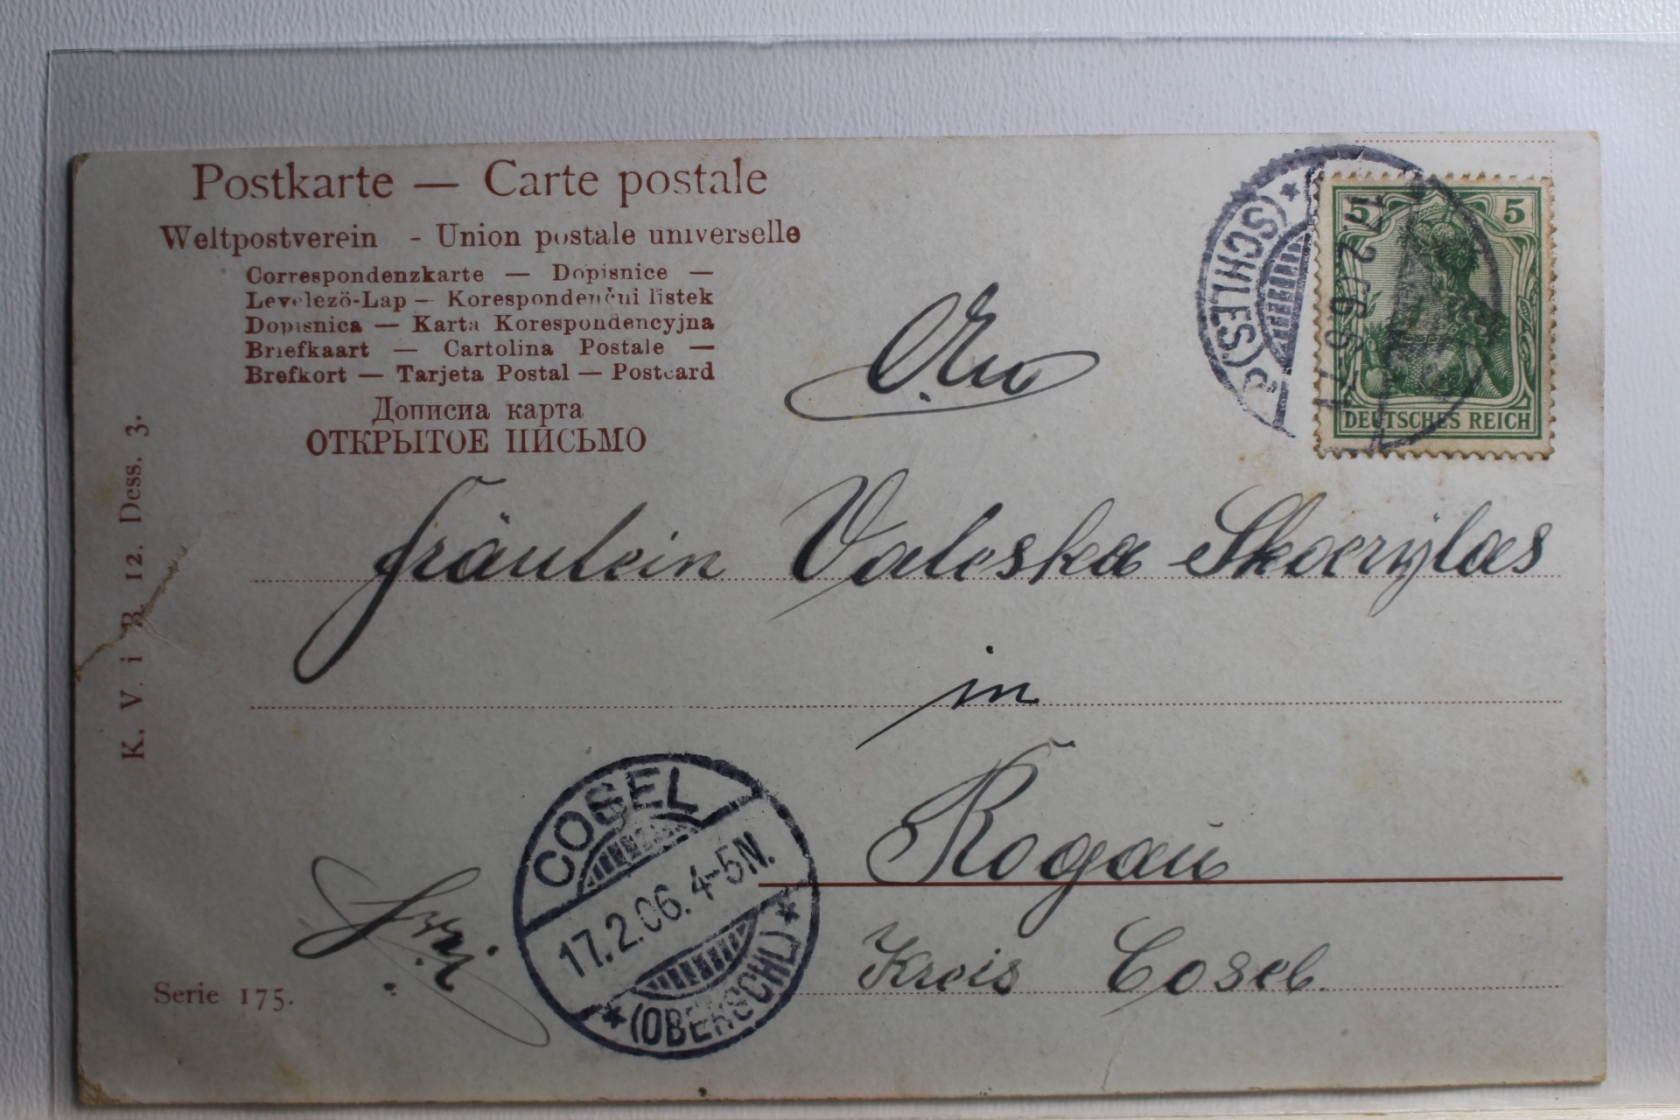 Postkarte — Carte postale
Weltpostverein - Union postale universelle
Correspondenzkarte — Dopisnice —
Levelező-Lap — Korespondenčni listek
Dopisnica — Karta Korespondencyjna
Briefkaart — Cartolina Postale —
Brefkort — Tarjeta Postal — Postcard
Дописна карта
ОТКРЫТОЕ ПИСЬМО
(SCHLES)
17.2.06
5 5
DEUTSCHES REICH
An
Fräulein Valeska
in
Rogau
Kreis Cosel.
COSEL
17.2.06. 4-5N.
(OBERSCHL)
K. V. i B. 12. Dess. 3.
Serie 175.